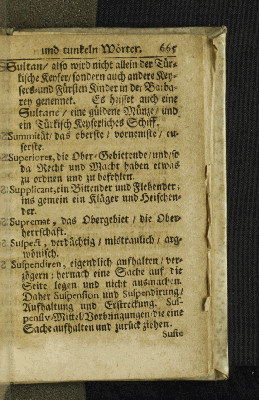 und tunckeln Wörter. 665
Sultan/ also wird nicht allein der Tür-
kische Keyser/ sondern auch andere Key-
sers und Fürsten Kinder in der Barba-
rey genennet. Es heisset auch eine
Sultane/ eine güldene Müntze/ und
ein Türkisch Keyserliches Schiff.
Summität/ das oberste/ vornemste/ eu-
serste.
Superiorer, die Ober-Gebietende/ und/so
da Recht und Macht haben etwas
zu ordnen und zu befehlen.
Supplicant, ein Bittender und Flehender;
ins gemein ein Kläger und Heischen-
der.
Supremat, das Obergebiet/ die Ober-
herrschaft.
Suspect, verdächtig/ mistraulich/ arg-
wönisch.
Suspendiren, eigentlich aufhalten/ ver-
zögern: hernach eine Sache auf die
Seite legen und nicht ausmachen.
Daher Suspension und Suspendirung/
Aufhaltung und Erstreckung. Sus-
pensiv-Mittel/ Vorbringungen/ die eine
Sache aufhalten und zurück ziehen.
Suste